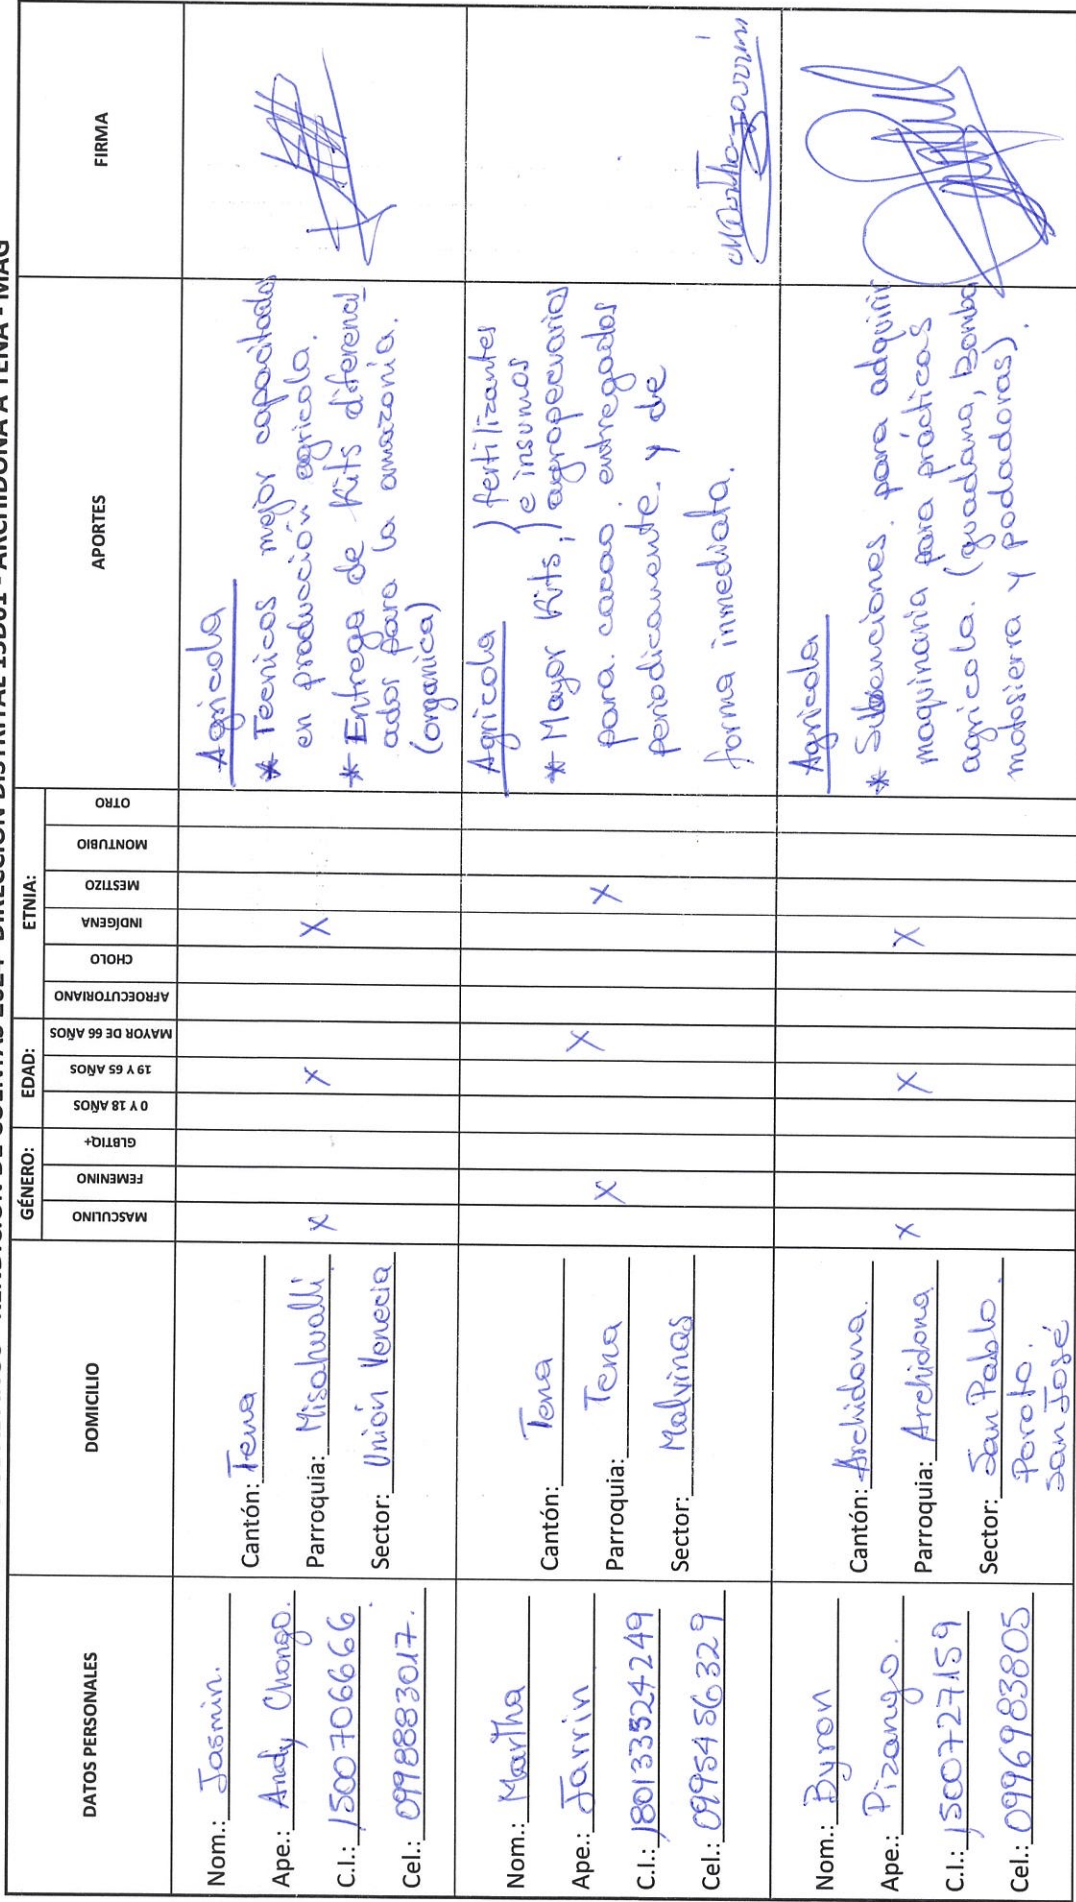 RENDICIÓN DE CUENTAS 2024 - DIRECCIÓN DISTRITAL 15D01 - ARCHIDONA A TENA - MAG
DATOS PERSONALES
DOMICILIO
GÉNERO:
EDAD:
ETNIA:
APORTES
FIRMA
MASCULINO
FEMENINO
GLBTIQ+
0 Y 18 AÑOS
19 Y 65 AÑOS
MAYOR DE 66 AÑOS
AFROECUTORIANO
CHOLO
INDÍGENA
MESTIZO
MONTUBIO
OTRO
Nom.: Jasmin.
Ape.: Andy Chongo.
C.I.: 1500706666
Cel.: 0998883017.
Cantón: Tena
Parroquia: Misahualli
Sector: Unión Venecia
X
X
X
Agricola
* Tecnicos mejor capacitados
en producción agricola.
* Entrega de Kits diferenci
ados para la amazonía.
(organica)
Nom.: Martha
Ape.: Jarrin
C.I.: 180133524249
Cel.: 0995456329
Cantón: Tena
Parroquia: Tena
Sector: Malvinas
X
X
X
Agricola
* Mayor Kits, } fertilizantes
e insumos
agropecuarios
para cacao entregados
periodicamente y de
forma inmediata.
Martha Jarrin
Nom.: Byron
Ape.: Pizango.
C.I.: 1500727159
Cel.: 0996983805
Cantón: Archidona.
Parroquia: Archidona
Sector: San Pablo.
Poroto.
San José
X
X
X
Agricola
* Subenciones para adquirir
maquinaria para prácticas
agricola. (guadana, bomba
motosierra y podadoras).